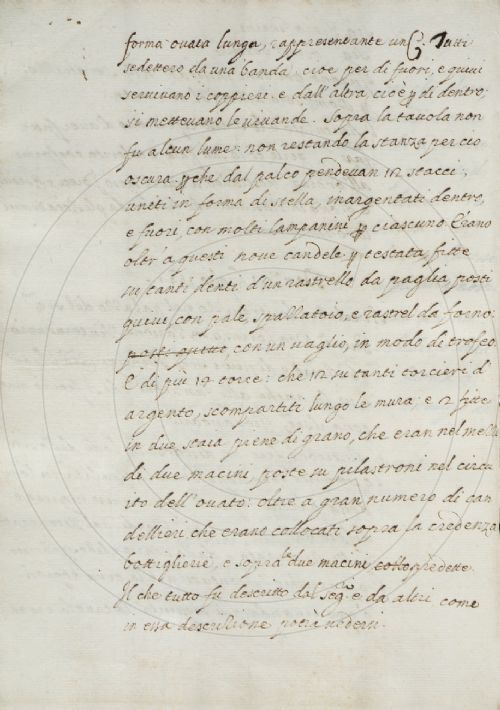 forma ovata lunga, rappresentante un C. Tutti
sedettero da una banda, cioè per di fuori, e quivi
servivano i coppieri e dall'altra cioè p di dentro,
si mettevano le vivande. Sopra la tavola non
fu alcun lume: non restando la stanza per ciò
oscura, pche dal palco pendevan 12 stacci,
uniti in forma di stella, inargentati dentro,
e fuori, con molti lampanini p ciascuno. Erano
oltr'a questi nove candele p testata, fitte
su tanti denti d'un rastrello da paglia, posti
quivi, con pale, spallatoio, e rastrel da forno:
posti quivi, con un vaglio, in modo di trofeo.
E di più 14 torce: che 12 su tanti torcieri d
argento, scompartiti lungo le mura: e 2 fitte
in due staia piene di grano, che eran nel mezzo
di due macini, poste su pilastroni nel circu
ito dell'ovato: oltre a gran numero di can
dellieri che erano collocati sopra la credenza
bottiglierie, e sopra le due macini sottospredette.
Il che tutto fu descritto dal Seg.o e da altri come
in essa descrizione potrà vedersi.